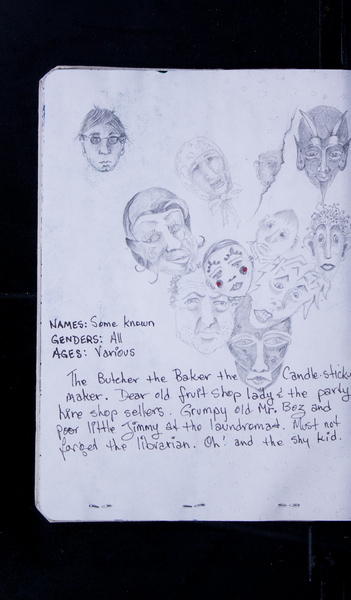 NAMES: Some known
GENDERS: All
AGES: Various
The Butcher the Baker the Candle-sticky
maker. Dear old fruit shop lady & the party
hire shop sellers. Grumpy old Mr. Boz and
poor little Jimmy at the laundromat. Must not
forget the librarian. Oh! and the shy kid.